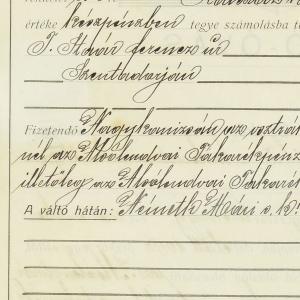 értéke készpénzben tegye számolásba
T. Stáhár ferencz úr
Szentadorján
Fizetendő Nagykanizsán az osztrák
nél az Alsólendvai Takarékpénz
illetőleg az Alsólendvai Takaré
A váltó hátán: Németh Mári s.k.